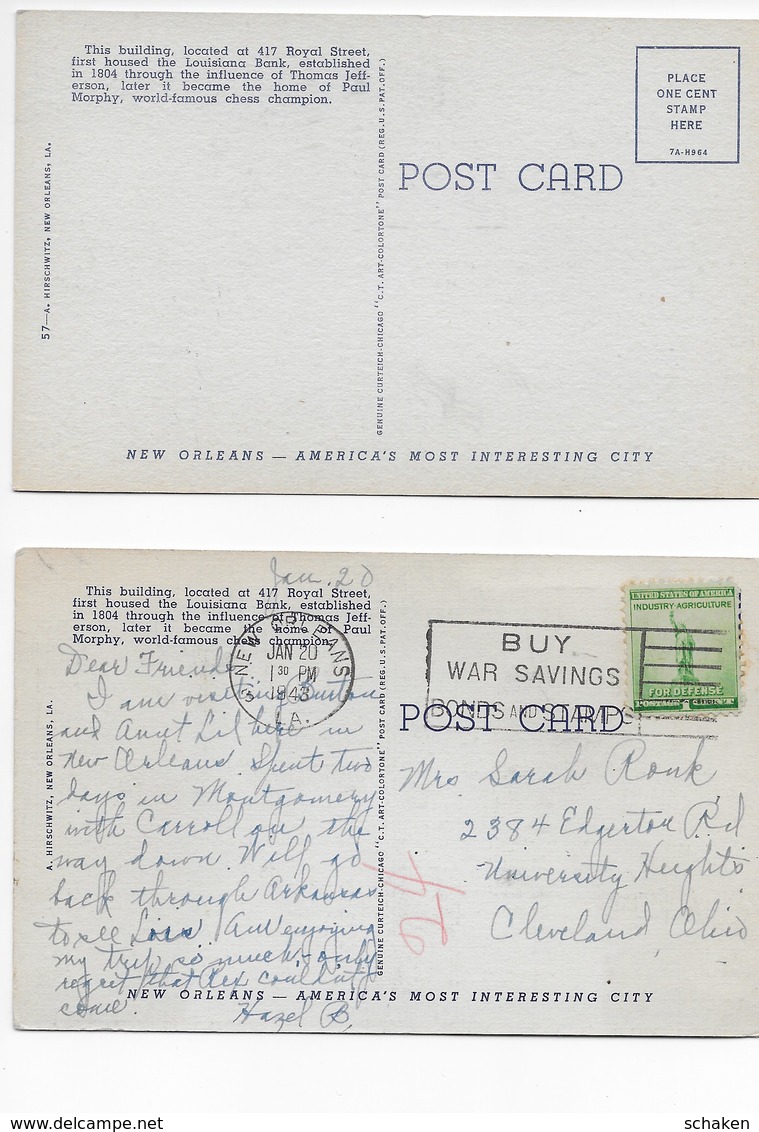 This building, located at 417 Royal Street,
first housed the Louisiana Bank, established
in 1804 through the influence of Thomas Jeff-
erson, later it became the home of Paul
Morphy, world-famous chess champion.
57—A. HIRSCHWITZ, NEW ORLEANS, LA.
GENUINE CURTEICH-CHICAGO "C.T. ART-COLORTONE" POST CARD (REG. U.S. PAT. OFF.)
POST CARD
PLACE
ONE CENT
STAMP
HERE
7A-H964
NEW ORLEANS — AMERICA'S MOST INTERESTING CITY
Jan. 20
This building, located at 417 Royal Street,
first housed the Louisiana Bank, established
in 1804 through the influence of Thomas Jeff-
erson, later it became the home of Paul
Morphy, world-famous chess champion.
NEW ORLEANS
JAN 20
1 30 PM
1943
LA.
BUY
WAR SAVINGS
BONDS AND STAMPS
UNITED STATES OF AMERICA
INDUSTRY-AGRICULTURE
FOR DEFENSE
POSTAGE 1 CENT
POST CARD
A. HIRSCHWITZ, NEW ORLEANS, LA.
GENUINE CURTEICH-CHICAGO "C.T. ART-COLORTONE" POST CARD (REG. U.S. PAT. OFF.)
Dear Friend
I am visiting Burton
and Aunt Lil here in
New Orleans. Spent two
days in Montgomery
with Carroll on the
way down. Will go
back through Arkansas
to see Lois. Am enjoying
my trip so much - only
regret that Rex couldn't
come.
Hazel B.
Mrs Sarah Ronk
2384 Edgerton Rd
University Heights
Cleveland, Ohio
24
NEW ORLEANS — AMERICA'S MOST INTERESTING CITY
schaken